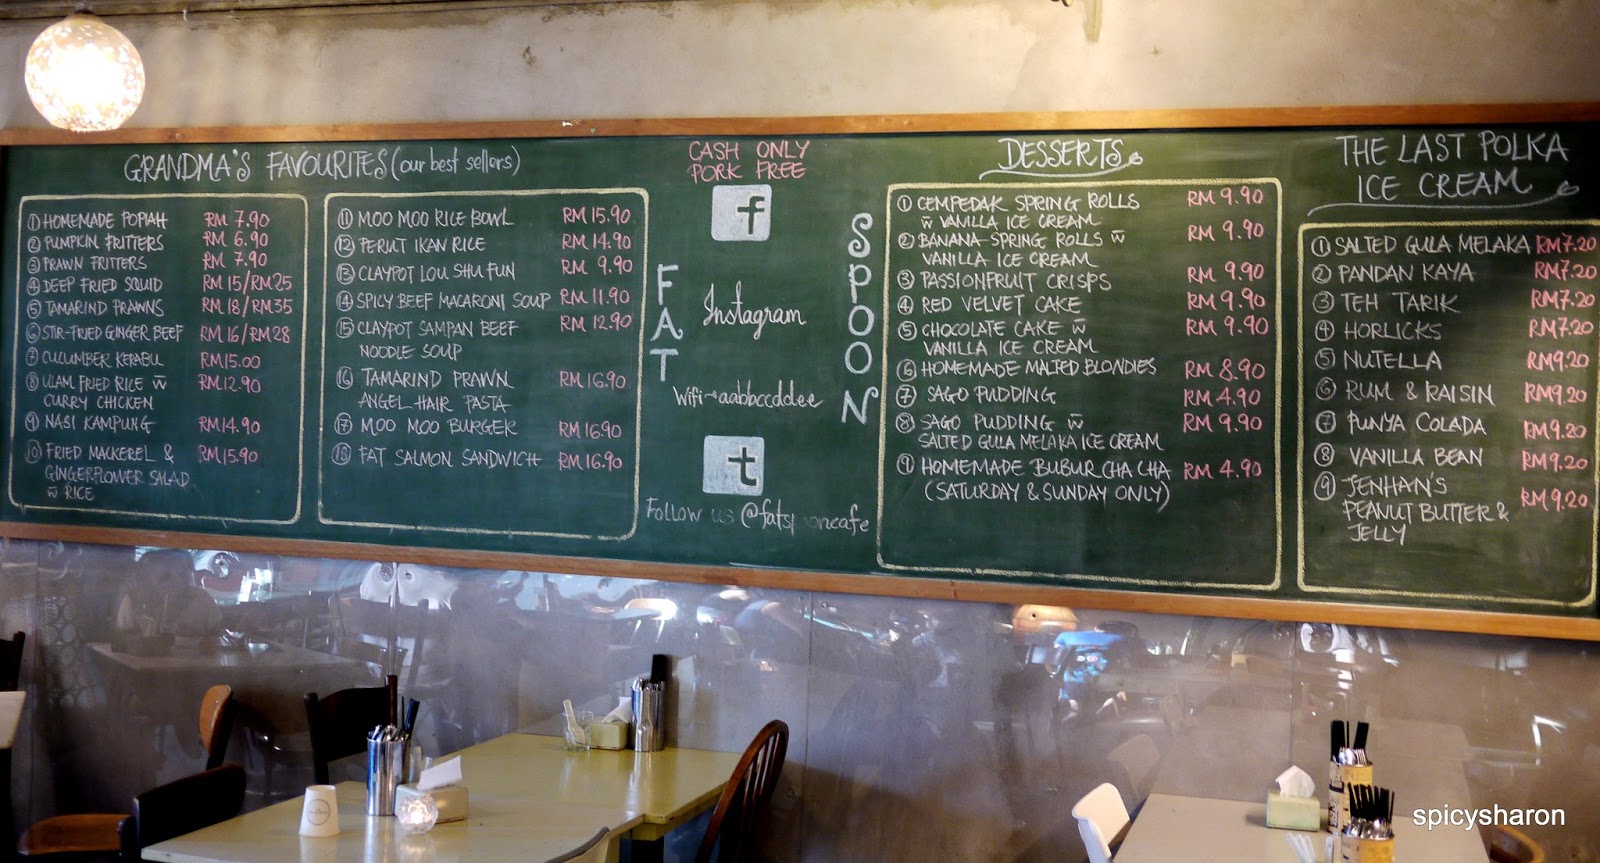 GRANDMA'S FAVOURITES (our best sellers)
① HOMEMADE POPIAH RM 7.90
② PUMPKIN FRITTERS RM 6.90
③ PRAWN FRITTERS RM 7.90
④ DEEP FRIED SQUID RM 15/RM 25
⑤ TAMARIND PRAWNS RM 18/RM 35
⑥ STIR-FRIED GINGER BEEF RM 16/RM 28
⑦ CUCUMBER KERABU RM 15.00
⑧ ULAM FRIED RICE w̄ RM 12.90
CURRY CHICKEN
⑨ NASI KAMPUNG RM 14.90
⑩ FRIED MACKEREL & RM 15.90
GINGERFLOWER SALAD
w̄ RICE
⑪ MOO MOO RICE BOWL RM 15.90
⑫ PERUT IKAN RICE RM 14.90
⑬ CLAYPOT LOU SHU FUN RM 9.90
⑭ SPICY BEEF MACARONI SOUP RM 11.90
⑮ CLAYPOT SAMPAN BEEF RM 12.90
NOODLE SOUP
⑯ TAMARIND PRAWN RM 16.90
ANGEL HAIR PASTA
⑰ MOO MOO BURGER RM 16.90
⑱ FAT SALMON SANDWICH RM 16.90
CASH ONLY
PORK FREE
f
FAT
SPOON
Instagram
Wifi→aabbccddee
t
Follow us @fatsp oncafe
DESSERTS
① CEMPEDAK SPRING ROLLS RM 9.90
w̄ VANILLA ICE CREAM
② BANANA SPRING ROLLS w̄ RM 9.90
VANILLA ICE CREAM
③ PASSIONFRUIT CRISPS RM 9.90
④ RED VELVET CAKE RM 9.90
⑤ CHOCOLATE CAKE w̄ RM 9.90
VANILLA ICE CREAM
⑥ HOMEMADE MALTED BLONDIES RM 8.90
⑦ SAGO PUDDING RM 4.90
⑧ SAGO PUDDING w̄ RM 9.90
SALTED GULA MELAKA ICE CREAM
⑨ HOMEMADE BUBUR CHA CHA RM 4.90
(SATURDAY & SUNDAY ONLY)
THE LAST POLKA
ICE CREAM
① SALTED GULA MELAKA RM7.20
② PANDAN KAYA RM7.20
③ TEH TARIK RM7.20
④ HORLICKS RM7.20
⑤ NUTELLA RM9.20
⑥ RUM & RAISIN RM9.20
⑦ PUNYA COLADA RM9.20
⑧ VANILLA BEAN RM9.20
⑨ JENHAN'S RM9.20
PEANUT BUTTER &
JELLY
spicysharon